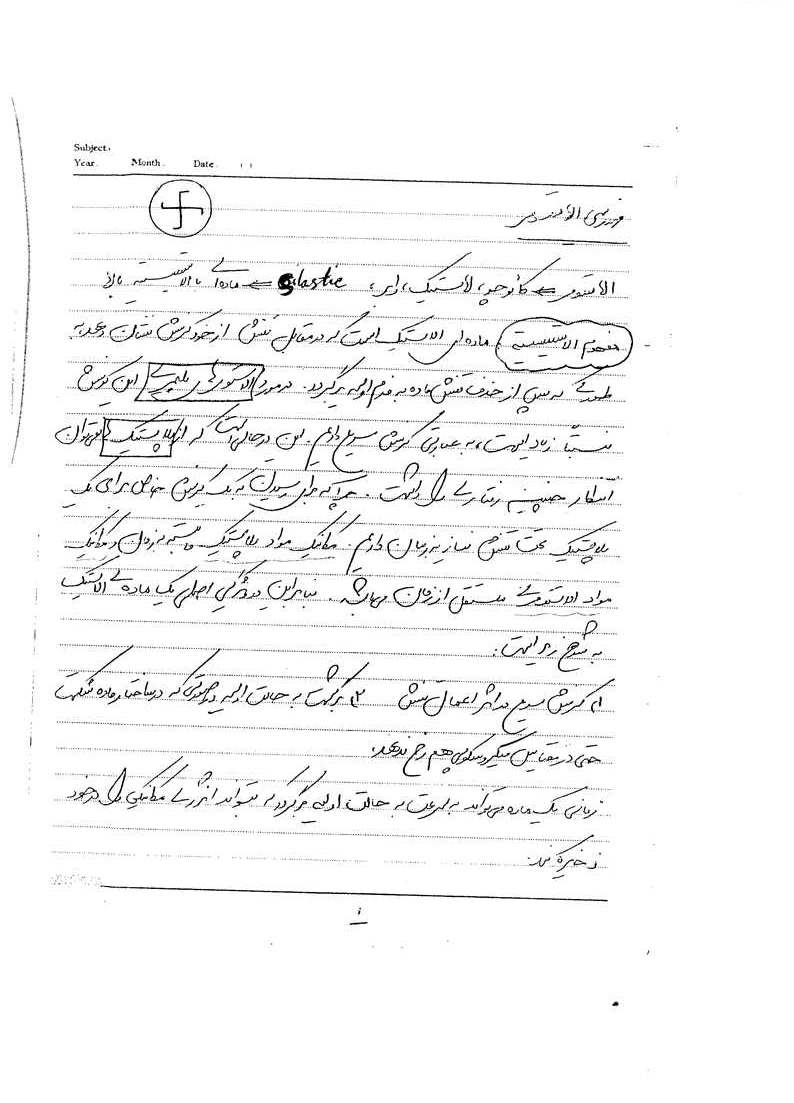 Subject.
Year. Month. Date.
فیزیک الاستومر
الاستومر ← کائوچو، لاستیک، رابر، elastic ← ماده‌ای با الاستیسیته بالا
مفهوم الاستیسیته: ماده‌ای الاستیک است که در مقابل تنش از خود کرنش نشان دهد به
طوری که پس از حذف تنش ماده به فرم اولیه برگردد. در مورد الاستومرهای پلیمری این کرنش
نسبتاً زیاد است، به عبارتی کرنش سریع داریم. این در حالی است که از پلاستیک نمی‌توان
انتظار چنین رفتاری را داشت. چرا که برای رسیدن به یک کرنش خاص برای یک
پلاستیک تحت تنش نیاز به زمان داریم. مکانیک مواد پلاستیک وابسته به زمان و مکانیک
مواد الاستومری مستقل از زمان می‌باشد. بنابراین دو ویژگی اصلی یک ماده‌ی الاستیک
به شرح زیر است:
۱) کرنش سریع در اثر اعمال تنش ۲) برگشت به حالت اولیه در صورتی که در ساختار ماده شکست
حتی در مقیاس میکروسکوپی هم رخ ندهد.
زمانی یک ماده می‌تواند به سرعت به حالت اولیه برگردد که بتواند انرژی مکانیکی را در خود
ذخیره کند.
۱